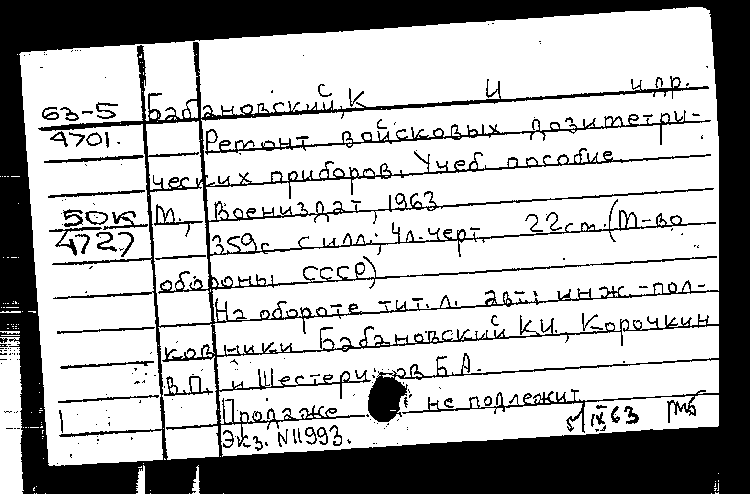 63-5 Бабановский, К И и др.
4701. Ремонт войсковых дозиметри-
ческих приборов. Учеб. пособие.
50к М., Воениздат, 1963
4727 359с. с илл.; 4л. черт. 22см. (М-во
обороны СССР)
На обороте тит. л. авт.: инж.-пол-
ковники Бабановский К.И., Корочкин
В.П. и Шестериков Б.А.
Продаже не подлежит
Экз. N11993. 5/IX 63